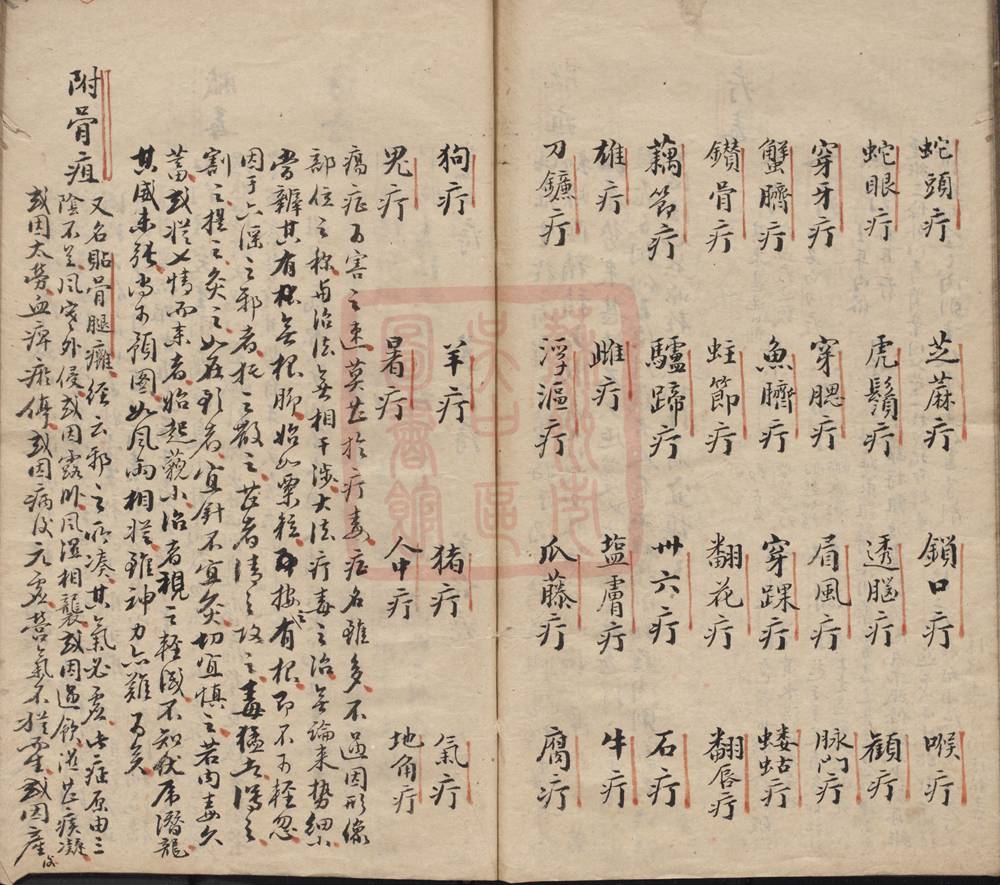 蛇頭疔 芝蔴疔 鎖口疔 喉疔
蛇眼疔 虎鬚疔 透腦疔 顴疔
穿牙疔 穿腮疔 眉風疔 脉門疔
蟹臍疔 魚臍疔 穿踝疔 螻蛄疔
鑚骨疔 蛀節疔 翻花疔 翻唇疔
藕節疔 驢蹄疔 卅六疔 石疔
雄疔 雌疔 塩膚疔 牛疔
刀鐮疔 浮漚疔 爪藤疔 腐疔
狗疔 羊疔 猪疔 氣疔
鬼疔 暑疔 人中疔 地角疔
瘍症为害之速莫甚於疔毒症名雖多不過因形像
部位之称与治法無相干涉大法疔毒之治無論来勢細小
當辨其有根無根脚始如粟粒即按之有根即不可輕忽
因于六淫之邪者托之散之甚者清之攻之毒猛者滌之
割之提之灸之如在形者宜針不宜灸切宜慎之若内毒久
蓄或從七情而来者始起藐小治者視之輕淺不知伏席潛龍
其威未張尚可預圖如風雨相從雖神力亦難为矣
附骨疽 又名貼骨腿癰経云邪之所湊其氣必虚此症原由三
陰不足風寒外侵或因露卧風湿相襲或因過飲湿甚痰凝
或因太勞血痺瘀停或因病後元虚營氣不從或因産後